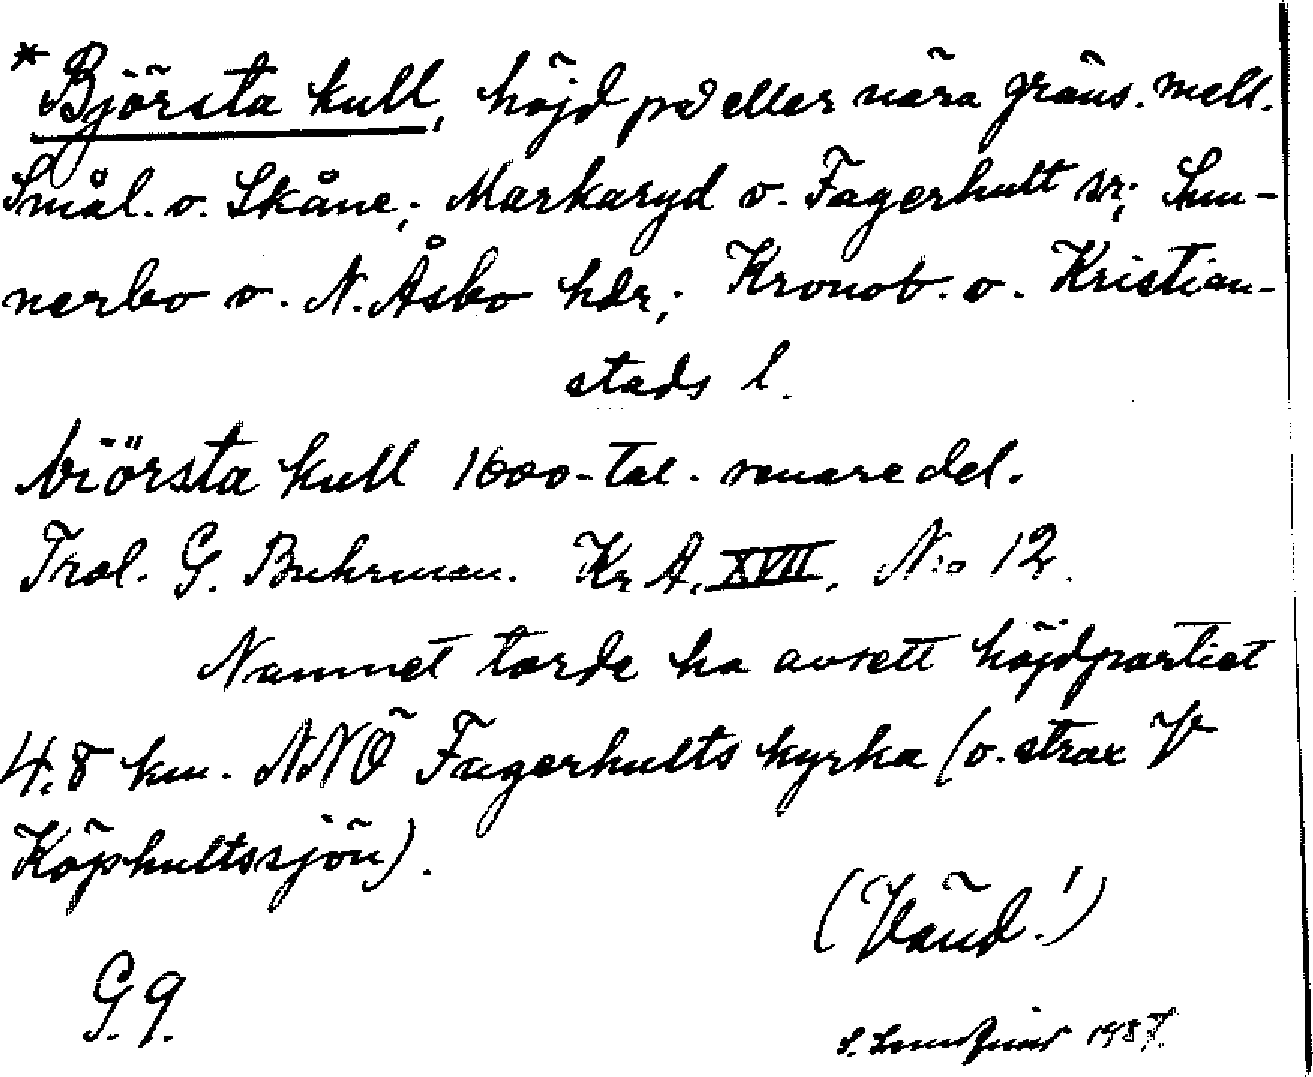 *Björsta kull, höjd på eller nära gräns. mell.
Smål. o. Skåne; Markaryd o. Fagerhult snr; Sun-
nerbo o. N. Åsbo hdr; Kronob. o. Kristian-
stads l.
biörsta kull 1600-tal. senare del.
Trol. G. Buhrman. Kr A. XVII. No 12.
Namnet torde ha avsett höjdpartiet
4.8 km. NNÖ Fagerhults kyrka (o. strax V
Köphultssjön).
(Vänd!)
G.9.
S. 1937.